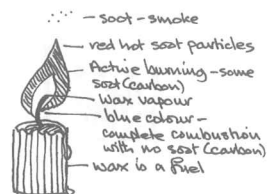 – soot – smoke
red hot soot particles
Active burning – some
soot (carbon)
wax vapour
blue colour –
complete combustion
with no soot (carbon)
wax is a fuel